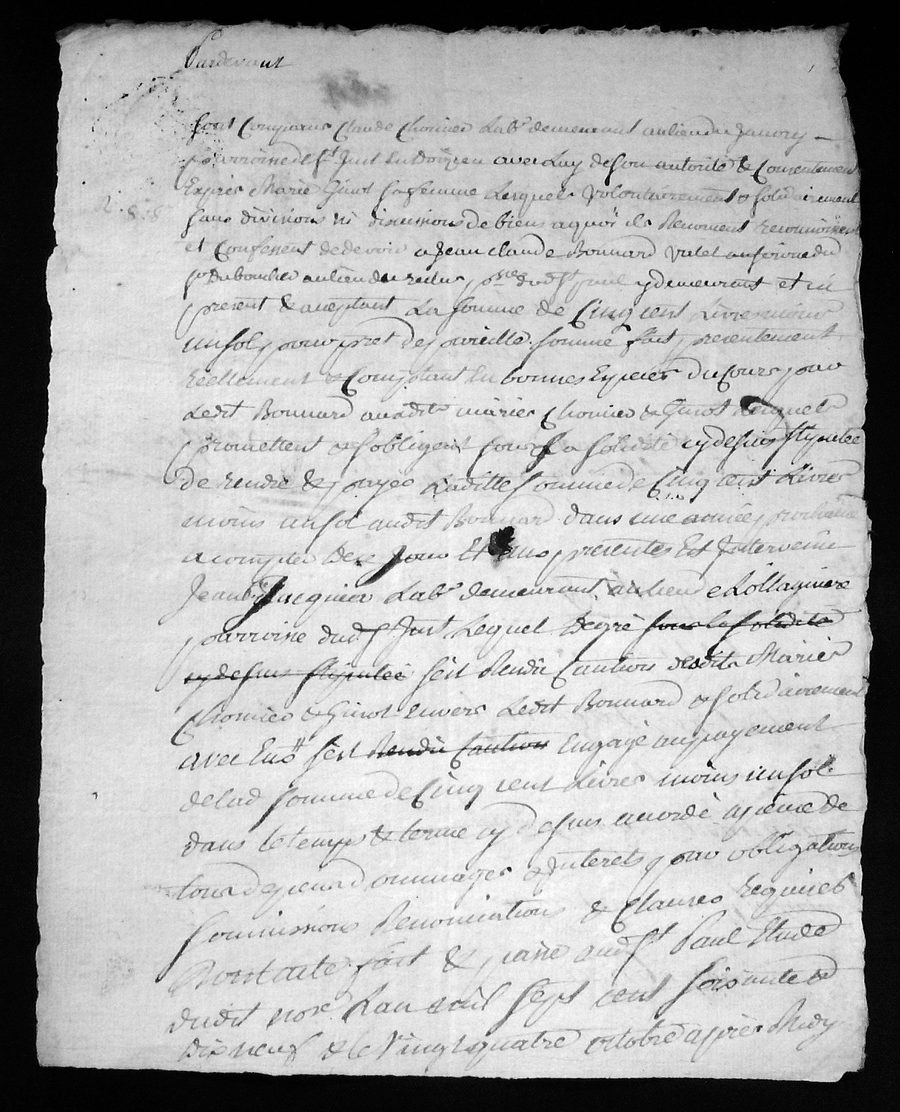 Pardevant
sont Comparus Claude Chomier Lab.r demeurant au lieu du Janvry
parroisse de St Just en Doizieu avec luy de son autorité & Consentement
Exprès Marie Ginot sa femme Lesquels volontairement & solidairement
sans division ni discussions de biens a quoy ils Renoncent Reconnoissent
et Confessent de devoir a Jean Claude Bonnard Valet
au lieu du psse dud St paul y demeurant et ici
present & aceptant La somme de Cinq cent Livres moins
un sol pour pret de pareille somme fait presentement
reellement & Comptant en bonnes Especes du Cours par
Ledit Bonnard audits mariés Chomier & Ginot Lesquels
promettent & s'obligent sous la solidité cy dessus stipulée
de rendre & payer Laditte somme de Cinq cent Livres
moins un sol audit Bonnard dans une année prochaine
a compter de ce Jour Et aux presentes Est Intervenu
Jean Jacquier Lab.r demeurant au lieu de
parroisse dud St Just Lequel De gré sous la solidité
cy dessus stipulée s'est Rendu Caution desdits Mariés
Chomier & Ginot envers Ledit Bonnard & solidairement
avec Eux s'est Rendu Caution Engagé au payement
de lad somme de Cinq cent Livres moins un sol
dans le temps & terme cy dessus acordé a peine de
tous depens dommages & Interets par obligations
soumissions Renonciations & Clauses Requises
Dont acte fait & passé aud St Paul Etude
dudit nore L'an mil sept cent soixante &
dix neuf & le Vingt quatre octobre après Midy